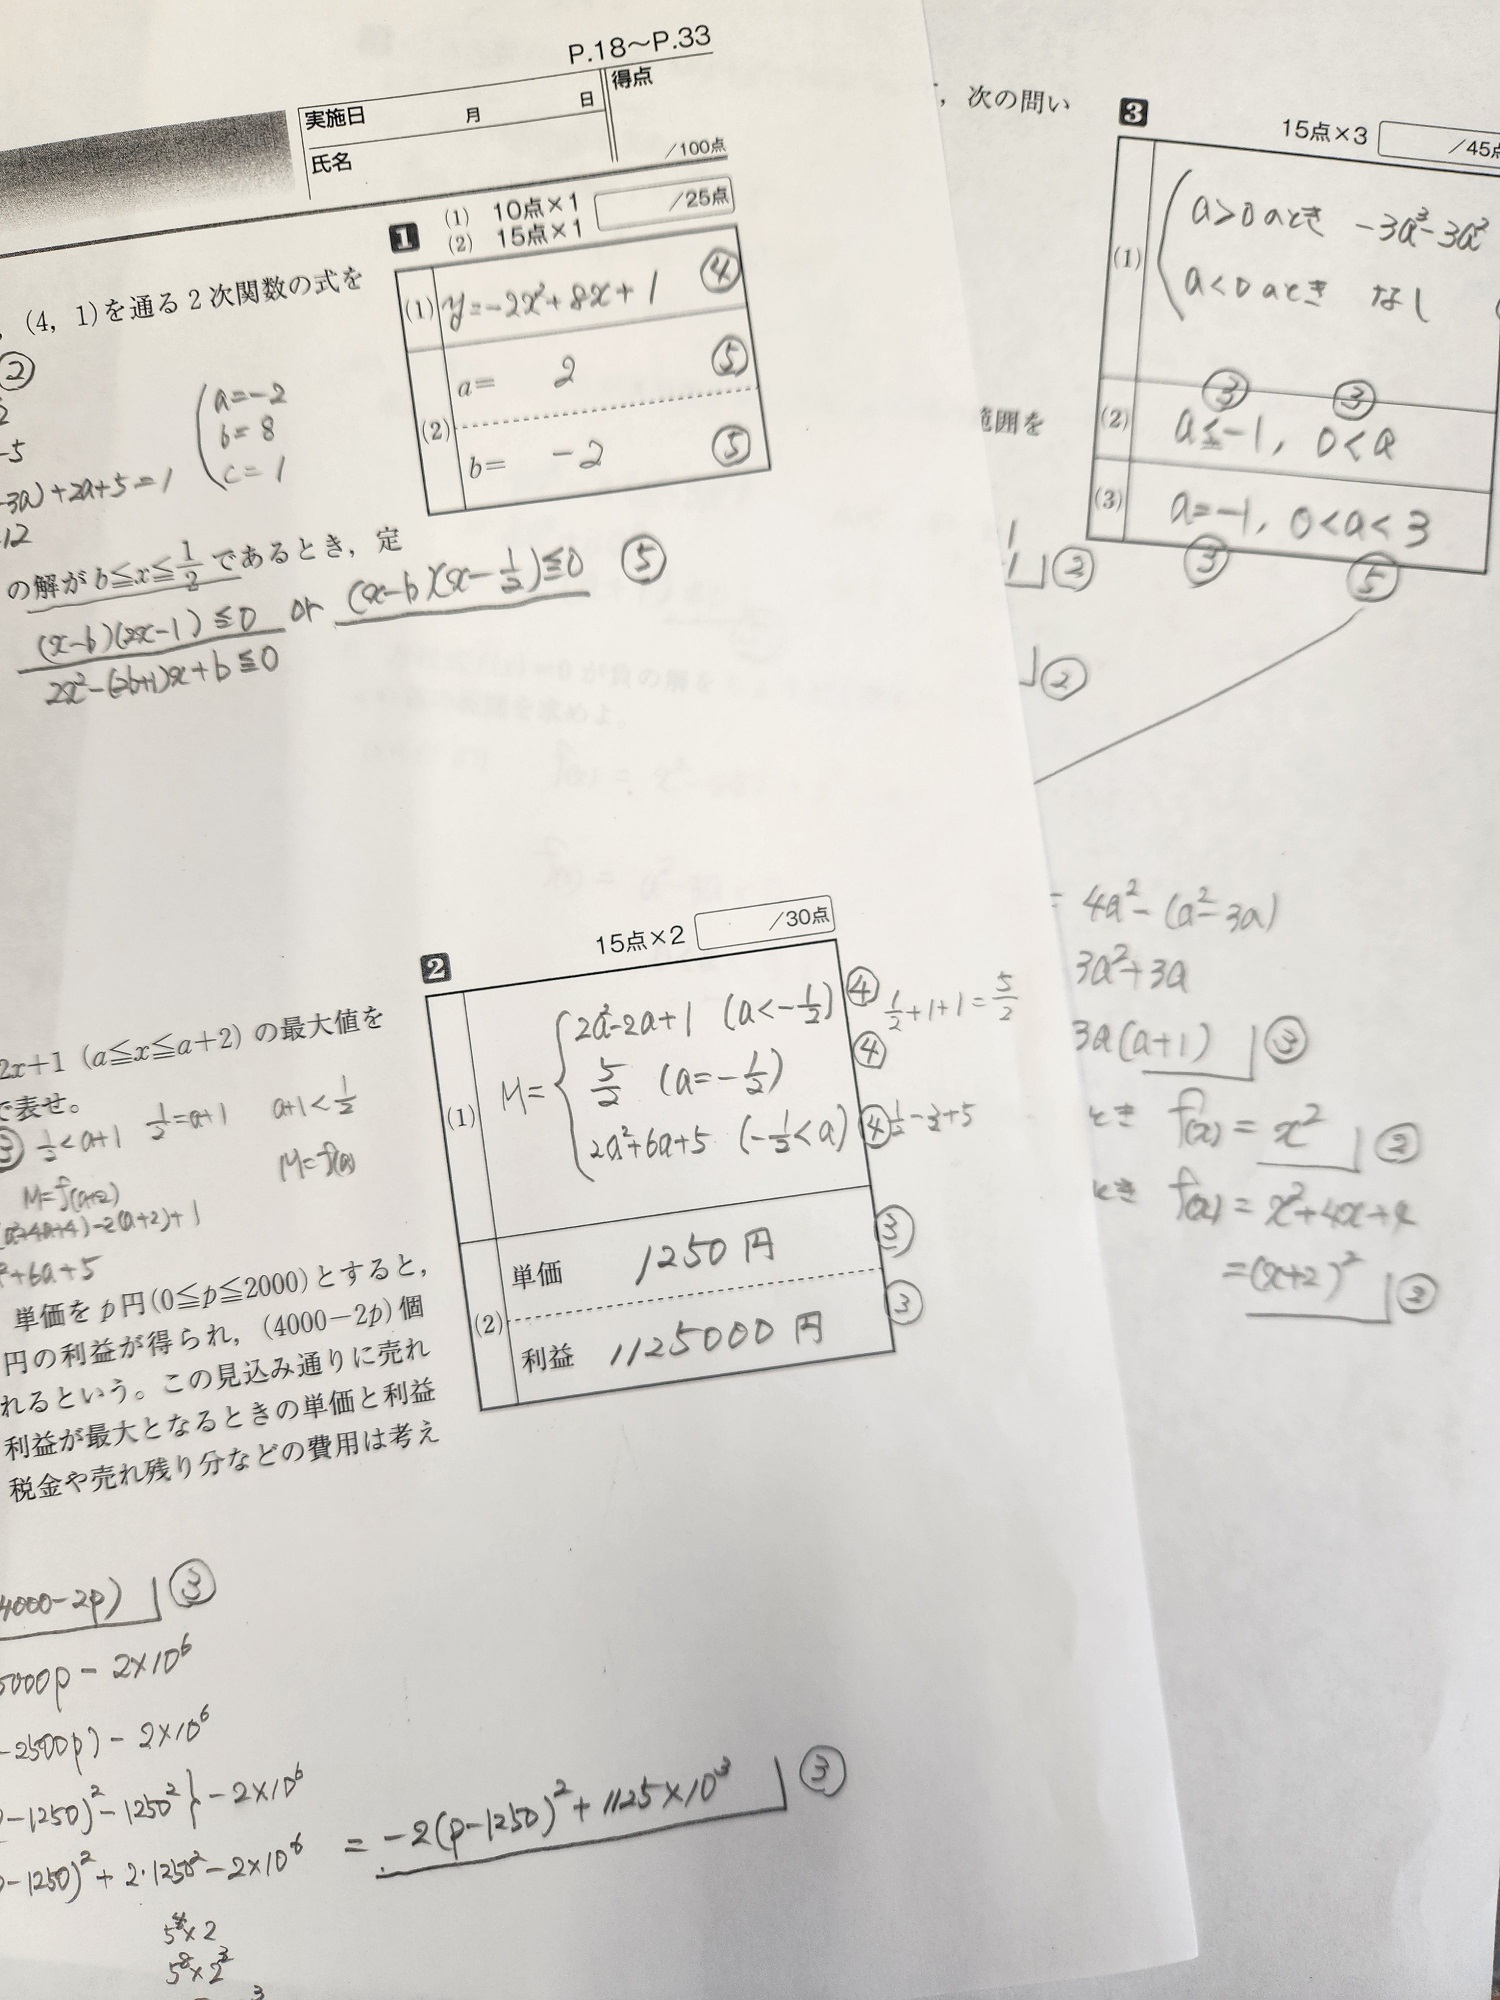 P.18〜P.33
実施日 月 日
得点
氏名
/100点
1
(1) 10点×1
(2) 15点×1
/25点
(1) y=-2x²+8x+1 ④
(2) a= 2 ⑤
b= -2 ⑤
, (4, 1)を通る2次関数の式を
②
-5
-3a)+2a+5=1
-12
a=-2
b=8
c=1
の解がb≦x≦1/2であるとき，定
(x-b)(2x-1)≦0 or (x-b)(x-1/2)≦0 ⑤
2x²-(2b+1)x+b≦0
2
15点×2
/30点
(1) M=
2a²-2a+1 (a<-1/2) ④
1/2+1+1=5/2
5/2 (a=-1/2) ④
2a²+6a+5 (-1/2<a) ④
1/2-3+5
(2) 単価 1250円 ③
利益 1125000円 ③
2x+1 (a≦x≦a+2) の最大値を
で表せ。
1/2<a+1
1/2=a+1
a+1<1/2
M=f(a+2)
M=f(a)
(a²+4a+4)-2(a+2)+1
²+6a+5
単価をp円(0≦p≦2000)とすると，
円の利益が得られ，(4000−2p)個
れるという。この見込み通りに売れ
利益が最大となるときの単価と利益
税金や売れ残り分などの費用は考え
4000-2p) ③
5000p-2×10⁶
-2500p)-2×10⁶
-1250)²-1250²}-2×10⁶
-1250)²+2・1250²-2×10⁶
=-2(p-1250)²+1125×10³ ③
5⁸×2²
，次の問い
3
15点×3
/45点
(1) a>0のとき -3a³-3a²
a<0のとき なし
(2) a≦-1, 0<a
③ ③
(3) a=-1, 0<a<3
③ ⑤
範囲を
②
②
= 4a²-(a²-3a)
3a²+3a
3a(a+1) ③
とき f(x)=x² ②
とき f(x)=x²+4x+4
=(x+2)² ②